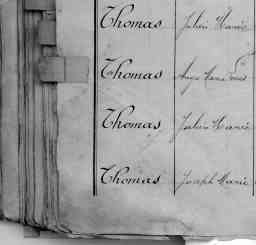 Thomas Julien Marie
Thomas
Thomas Julien Marie
Thomas Joseph Marie